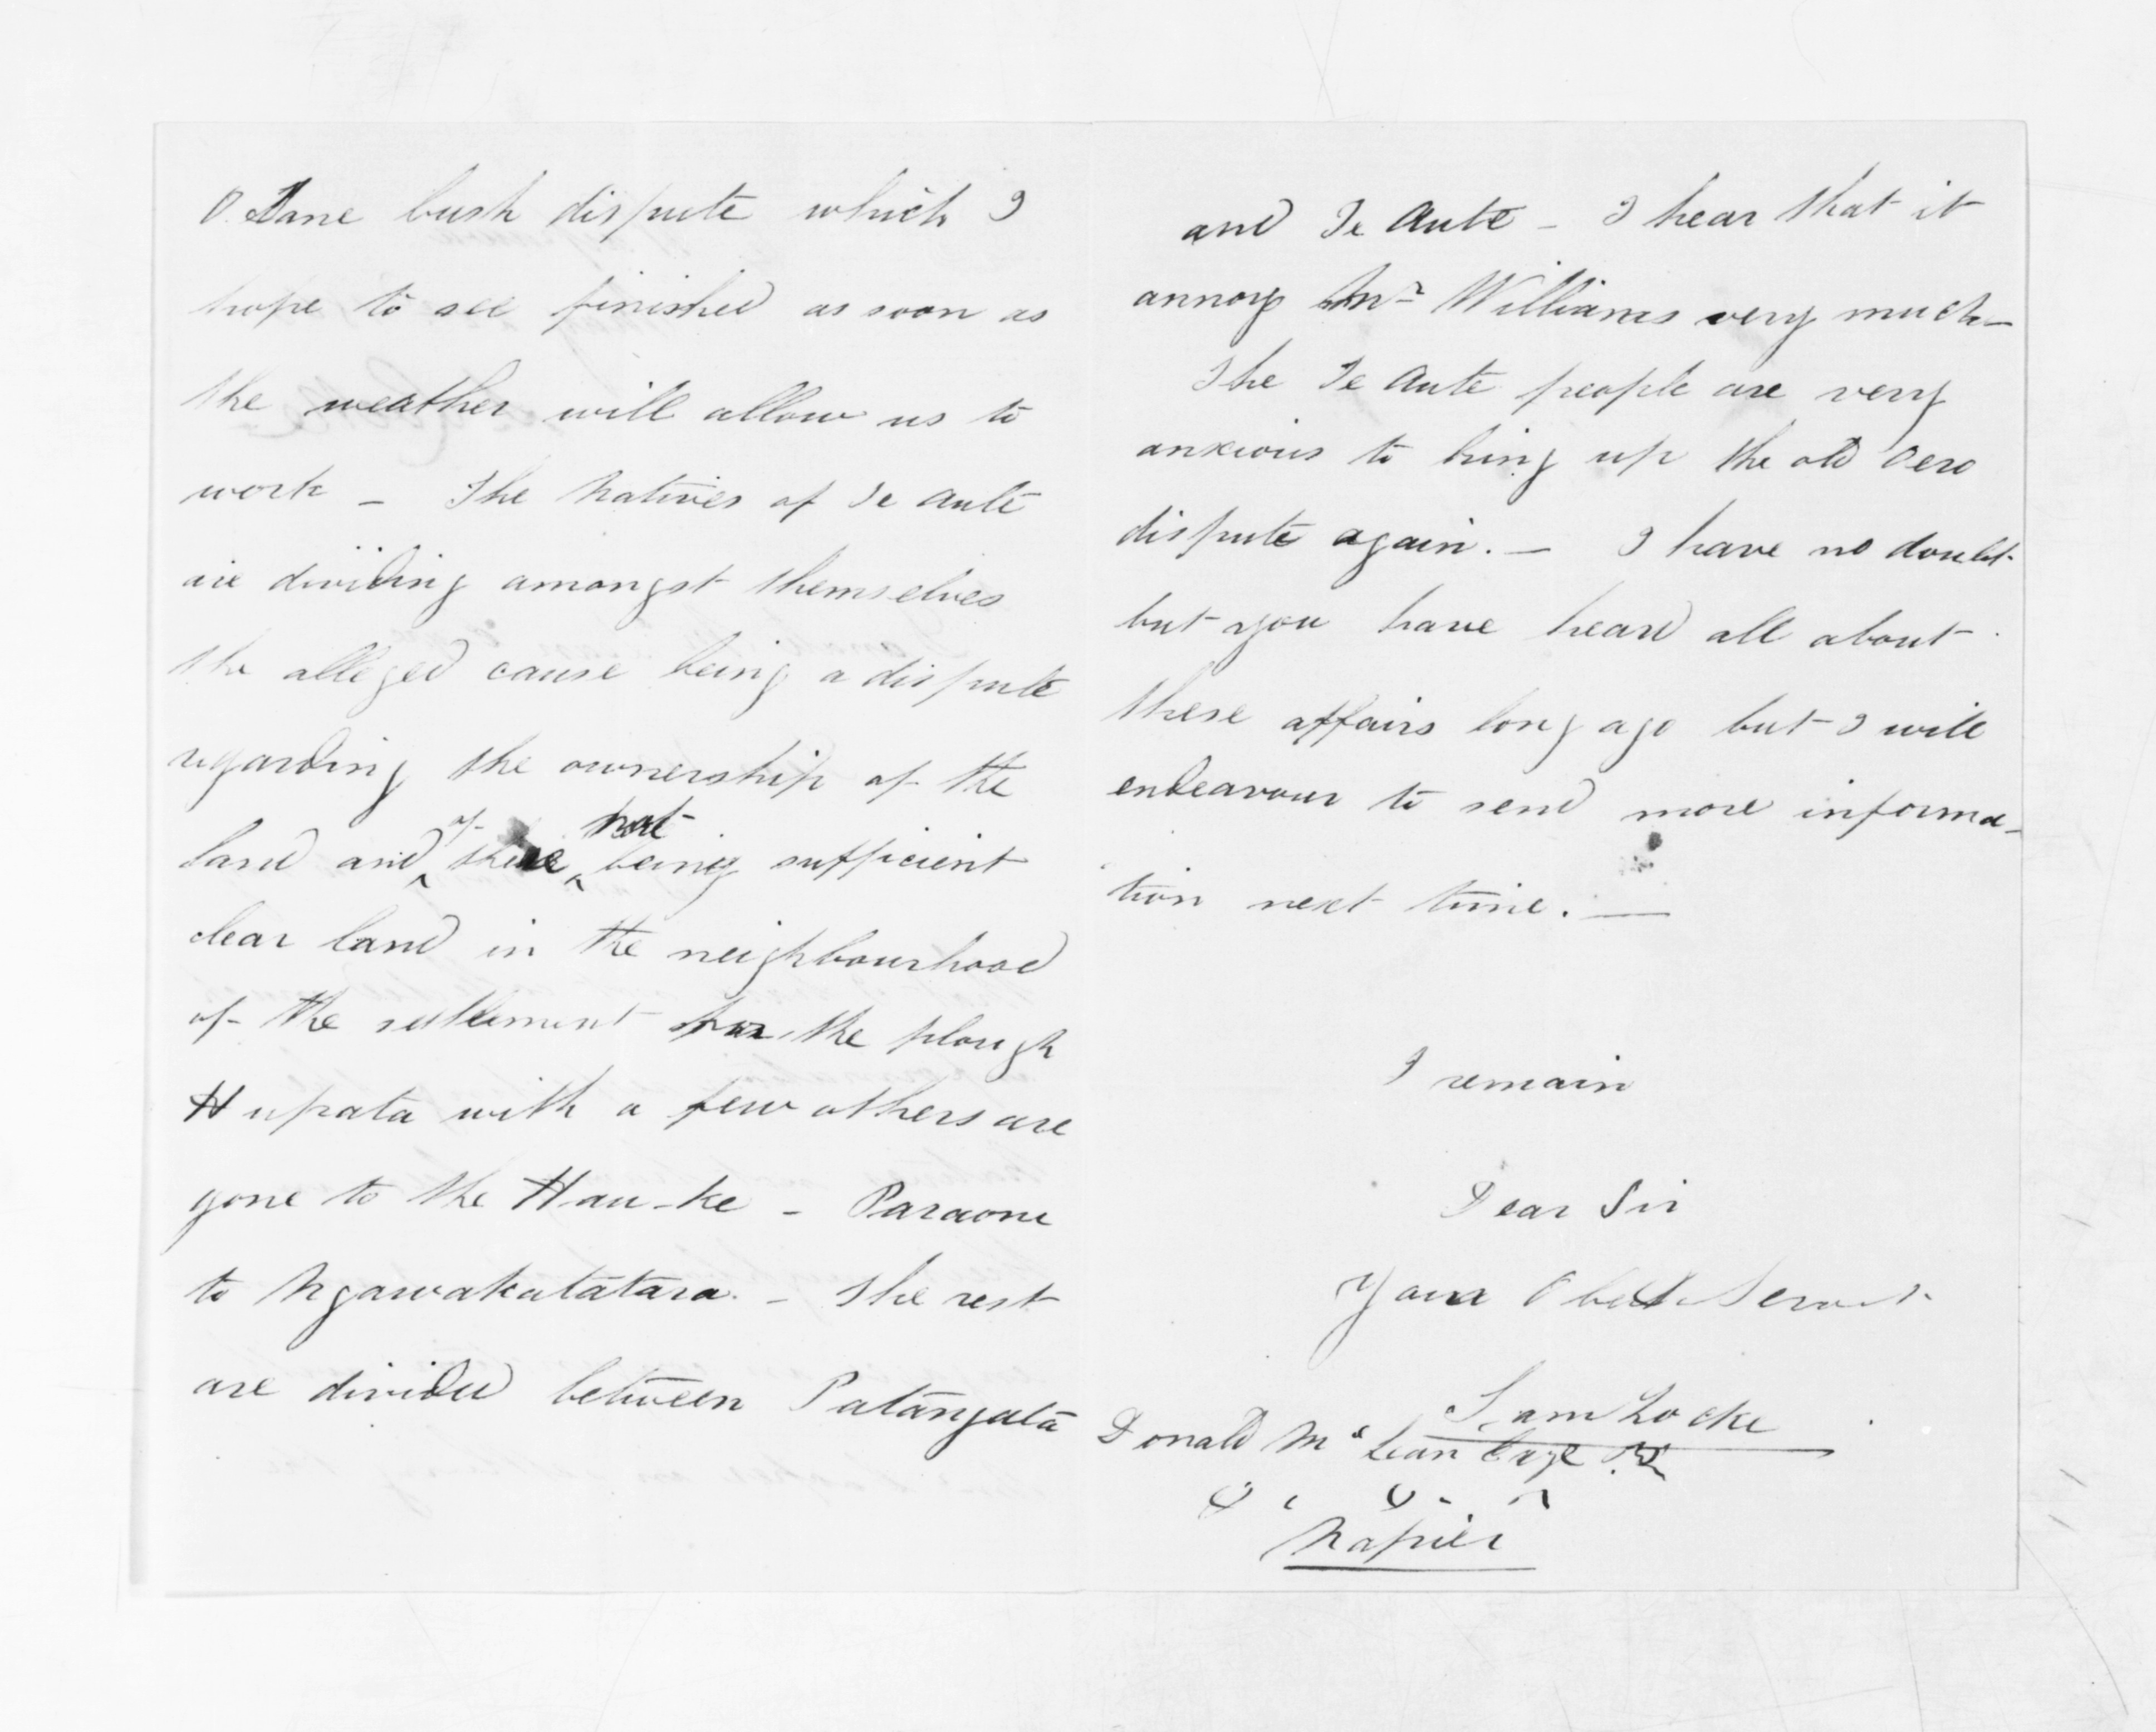 O. Tane bush dispute which I
hope to see finished as soon as
the weather will allow us to
work – The Natives of Te Aute
are dividing amongst themselves
the alleged cause being a dispute
regarding the ownership of the
land and of there not being sufficient
clear land in the neighbourhood
of the settlement for the plough
Hupata with a few others are
gone to the Hau-ke – Paraone
to Ngawakatatara. – The rest
are divided between Patangata
and Te Aute – I hear that it
annoys Mr Williams very much –
The Te Aute people are very
anxious to bring up the old Oero
dispute again. – I have no doubt
but you have heard all about
these affairs long ago but I will
endeavour to send more informa-
tion next time. —
I remain
Dear Sir
Your Obedt Servant
Sam Locke
Donald McLean Esqe
Napier